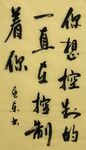 你想控制的
一直在控制
着你